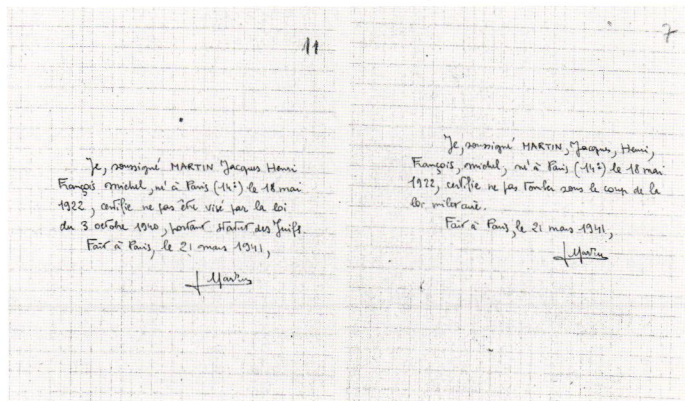 11
Je, soussigné MARTIN Jacques Henri
François Michel, né à Paris (14e) le 18 mai
1922, certifie ne pas être visé par la loi
du 3 octobre 1940, portant statut des Juifs.
Fait à Paris, le 21 mars 1941,
J Martin
7
Je, soussigné MARTIN, Jacques, Henri,
François, Michel, né à Paris (14e) le 18 mai
1922, certifie ne pas tomber sous le coup de la
loi militaire.
Fait à Paris, le 21 mars 1941,
J Martin